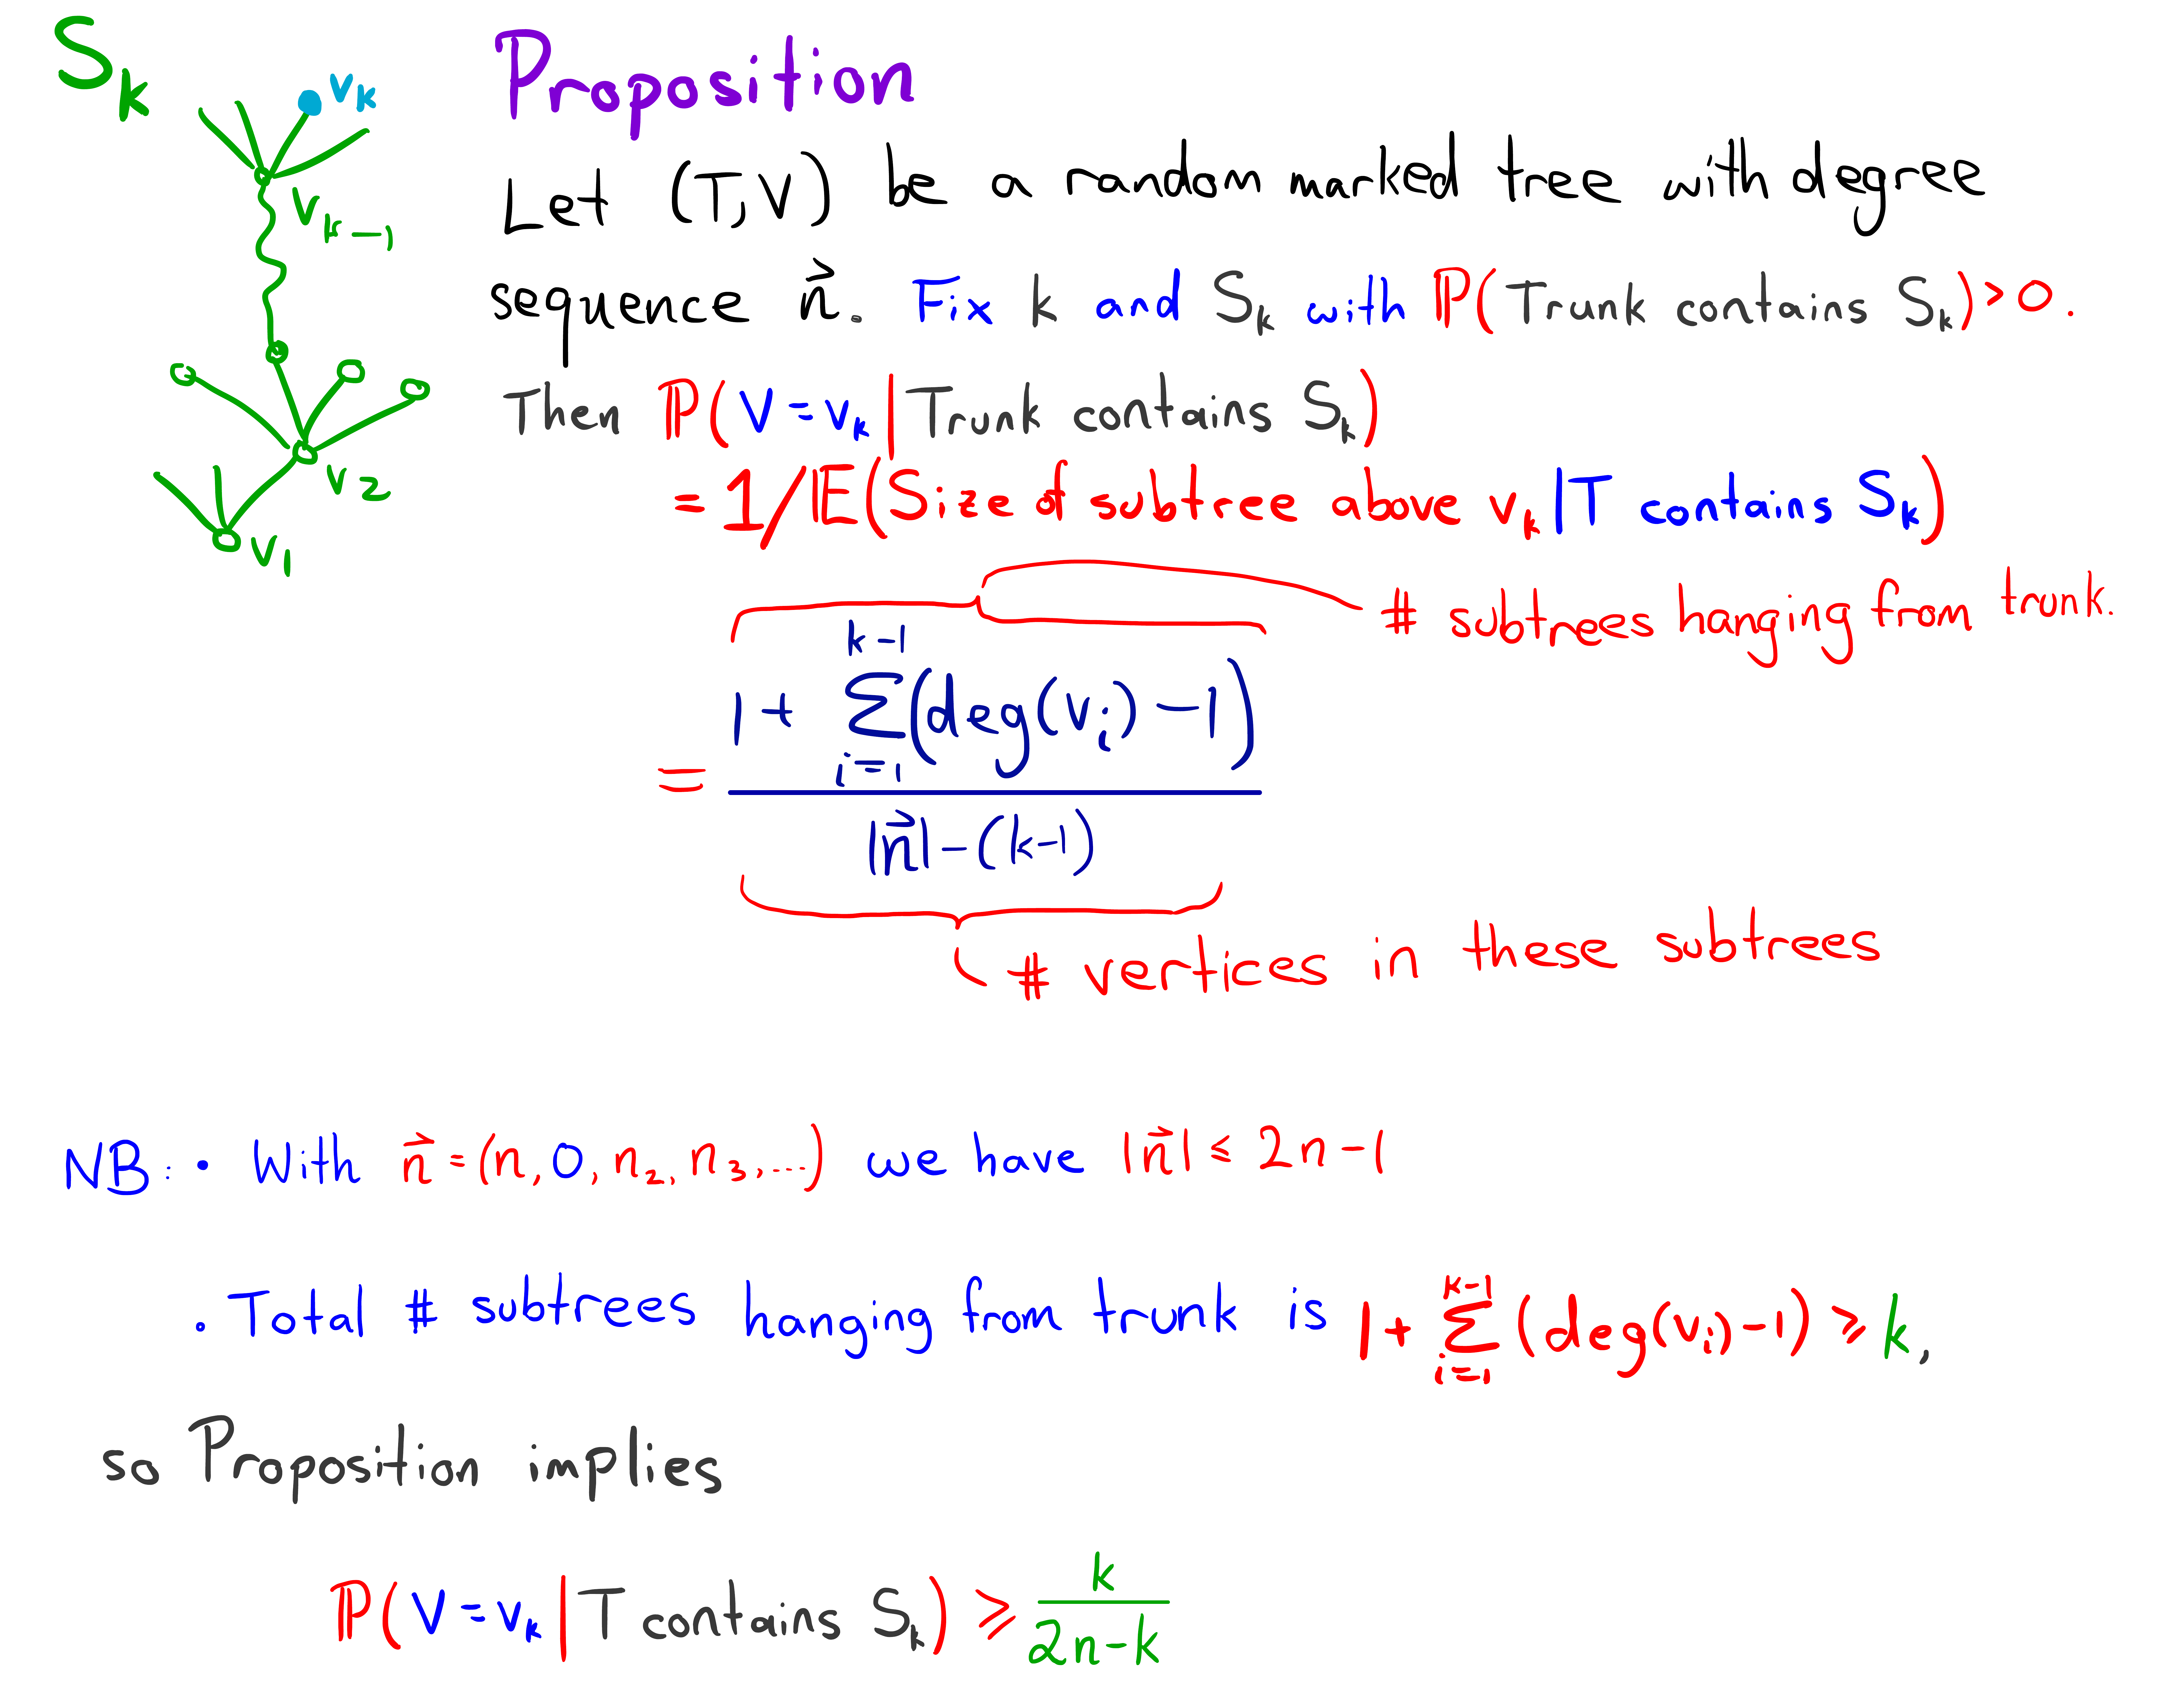 S_k
v_k
v_{k-1}
v_2
v_1
Proposition
Let (T,V) be a random marked tree with degree
sequence \vec{n}. Fix k and S_k with ℙ(Trunk contains S_k)>0.
Then ℙ(V=v_k|Trunk contains S_k)
=1/𝔼(Size of subtree above v_k|T contains S_k)
# subtrees hanging from trunk.
= \frac{1+\sum_{i=1}^{k-1}(deg(v_i)-1)}{|\vec{n}|-(k-1)}
# vertices in these subtrees
NB: • With \vec{n}=(n,0,n_2,n_3,...) we have |\vec{n}|≤2n-1
• Total # subtrees hanging from trunk is 1+\sum_{i=1}^{k-1}(deg(v_i)-1)≥k,
so Proposition implies
ℙ(V=v_k|T contains S_k)≥\frac{k}{2n-k}